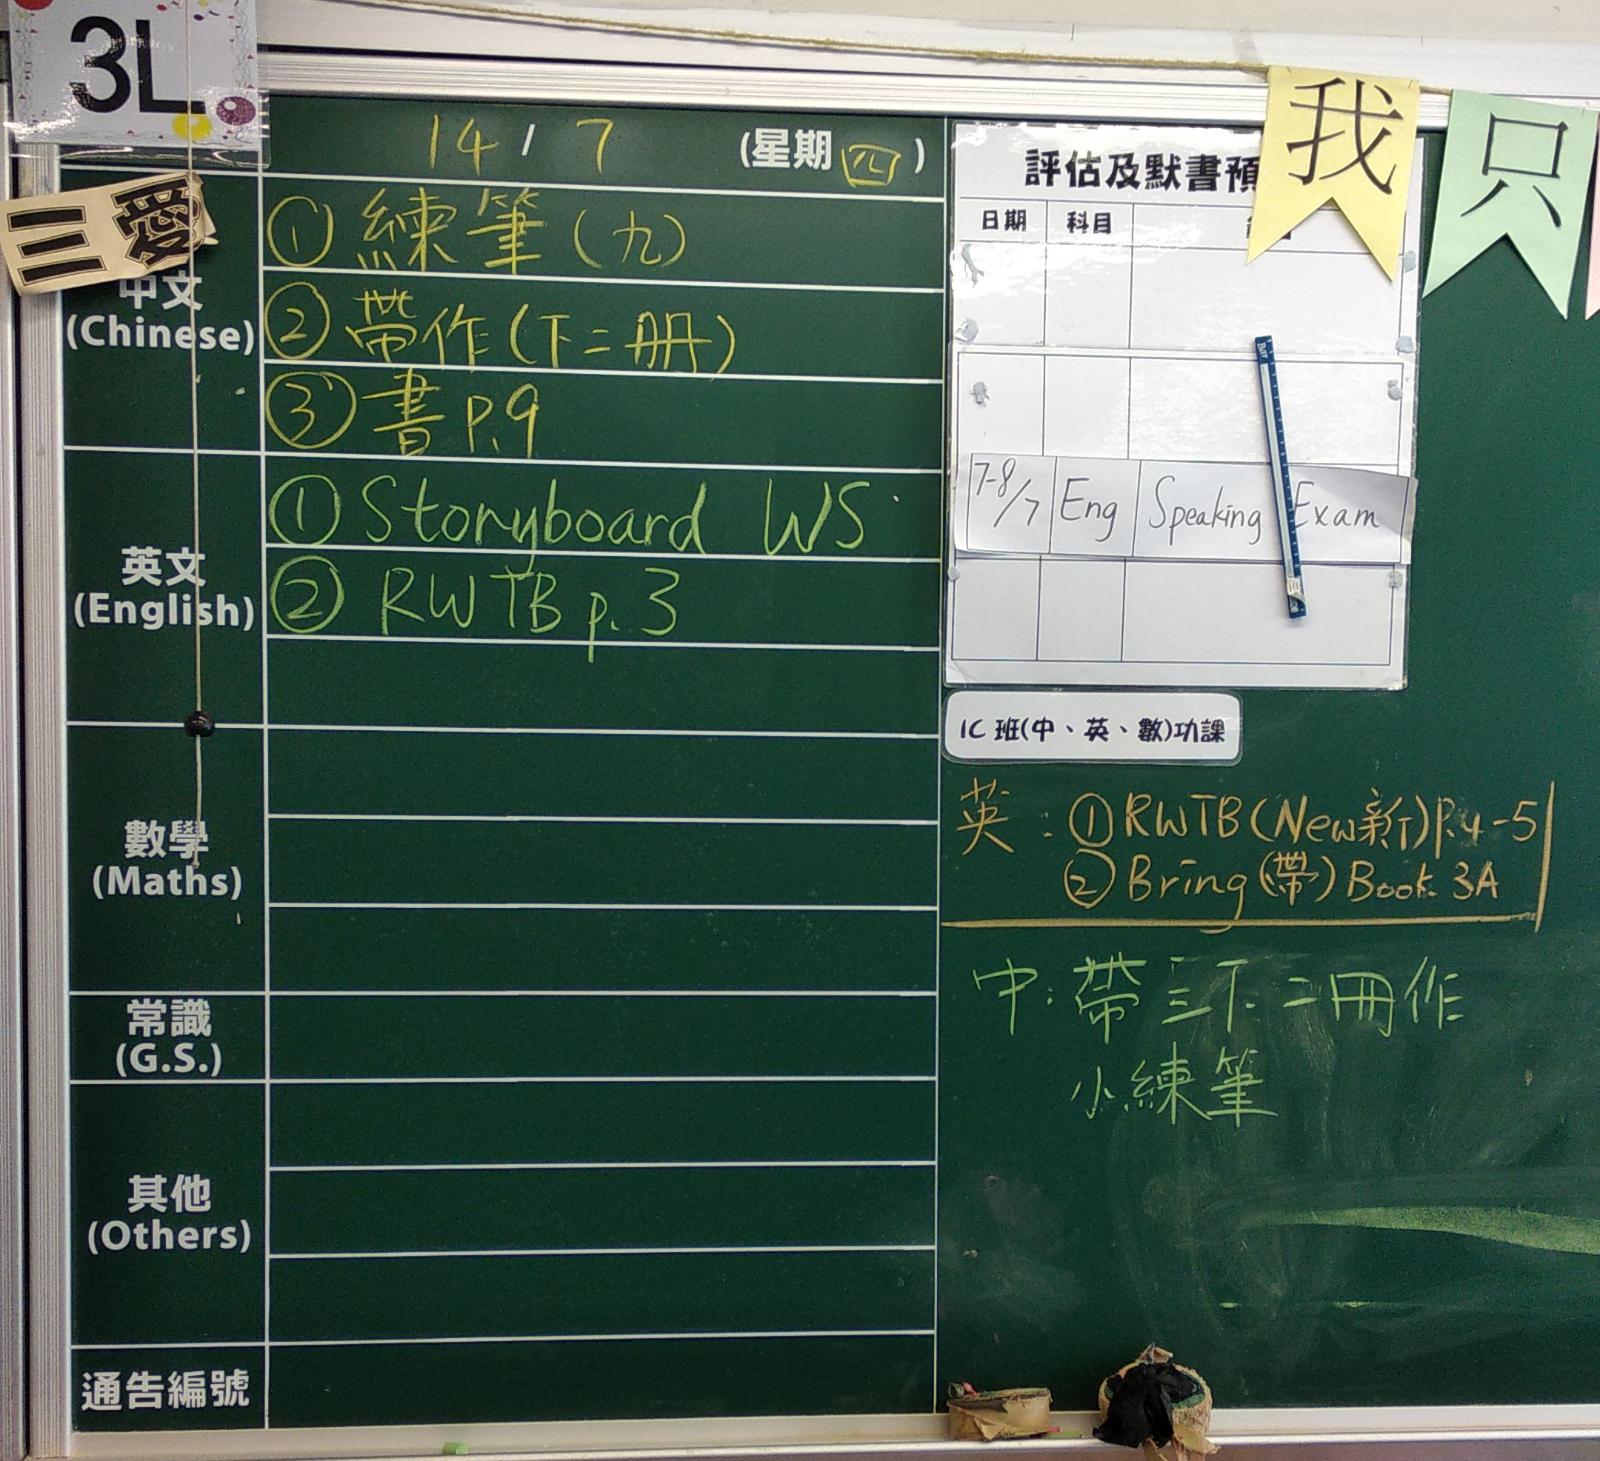 3L
三愛
14 / 7 (星期四)
中文
(Chinese)
① 練筆(九)
② 帶作(下二冊)
③ 書 P.9
英文
(English)
① Storyboard WS
② RWTB p. 3
數學
(Maths)
常識
(G.S.)
其他
(Others)
通告編號
評估及默書預
日期 科目
7-8/7 Eng Speaking Exam
我
只
IC 班(中、英、數)功課
英: ① RWTB (New新) P.4-5
② Bring (帶) Book 3A
中: 帶三下二冊作
小練筆